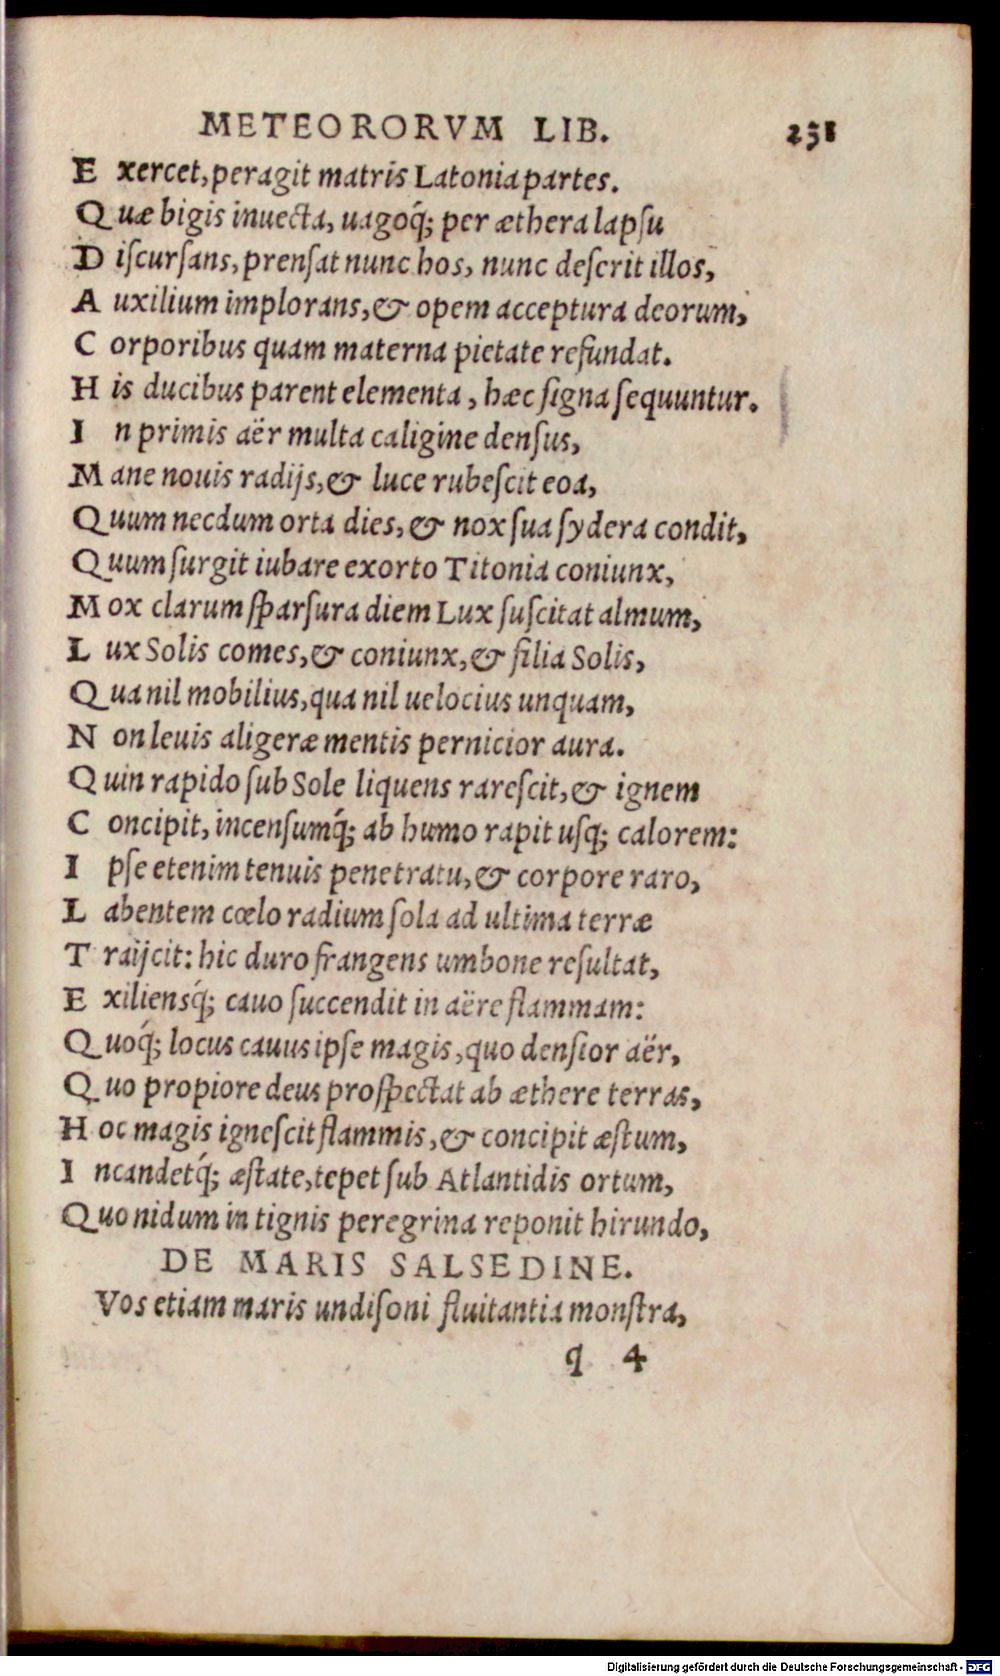 METEORORVM LIB. 231
E xercet, peragit matris Latonia partes.
Q uæ bigis inuecta, uagoq́; per æthera lapſu
D iſcurſans, prenſat nunc hos, nunc deſerit illos,
A uxilium implorans, & opem acceptura deorum,
C orporibus quam materna pietate refundat.
H is ducibus parent elementa, hæc ſigna ſequuntur.
I n primis aër multa caligine denſus,
M ane nouis radijs, & luce rubeſcit eoa,
Q uum necdum orta dies, & nox ſua ſydera condit,
Q uum ſurgit iubare exorto Titonia coniunx,
M ox clarum ſparſura diem Lux ſuſcitat almum,
L ux Solis comes, & coniunx, & filia Solis,
Q ua nil mobilius, qua nil uelocius unquam,
N on leuis aligeræ mentis pernicior aura.
Q uin rapido ſub Sole liquens rareſcit, & ignem
C oncipit, incenſumq́; ab humo rapit uſq; calorem:
I pſe etenim tenuis penetratu, & corpore raro,
L abentem cœlo radium ſola ad ultima terræ
T raijcit: hic duro frangens umbone reſultat,
E xiliensq́; cauo ſuccendit in aëre flammam:
Q uoq́; locus cauus ipſe magis, quo denſior aër,
Q uo propiore deus proſpectat ab æthere terras,
H oc magis igneſcit flammis, & concipit æſtum,
I ncandetq́; æſtate, tepet ſub Atlantidis ortum,
Q uo nidum in tignis peregrina reponit hirundo,
DE MARIS SALSEDINE.
Vos etiam maris undiſoni fluitantia monſtra,
q 4
Digitalisierung gefördert durch die Deutsche Forschungsgemeinschaft - DFG